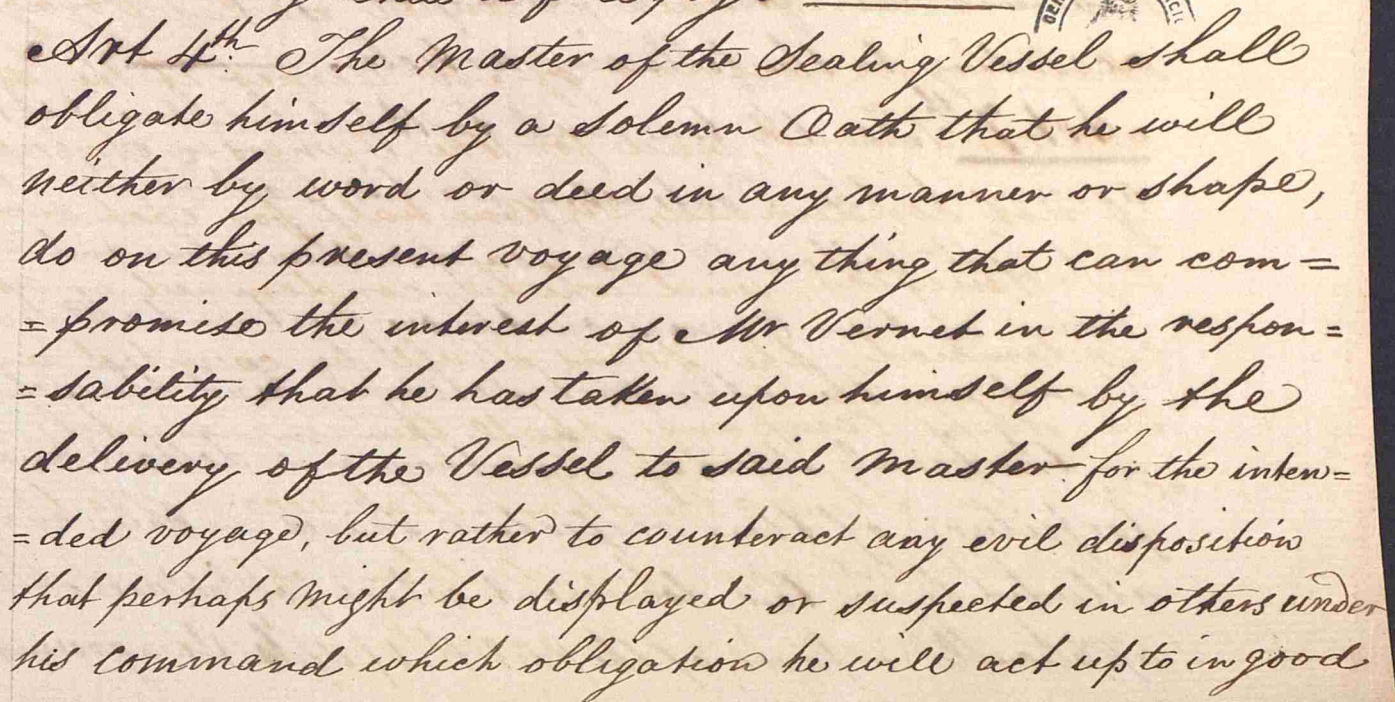 Art 4th. The Master of the Sealing Vessel shall
obligate himself by a solemn Oath that he will
neither by word or deed in any manner or shape,
do on this present voyage any thing that can com=
=promise the interest of Mr Vernet in the respon=
=sability that he has taken upon himself by the
delivery of the Vessel to said Master for the inten=
=ded voyage, but rather to counteract any evil disposition
that perhaps might be displayed or suspected in others under
his command which obligation he will act up to in good